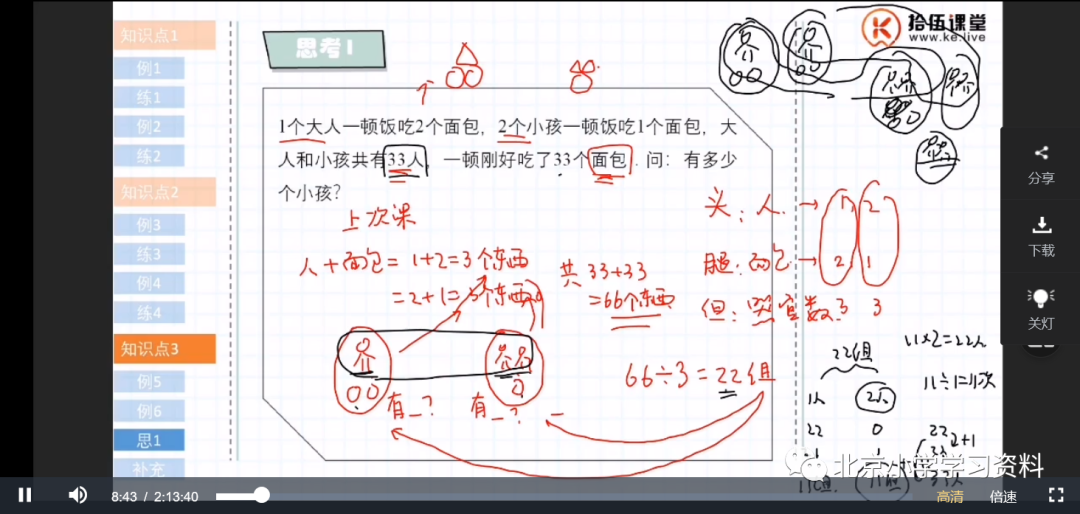 知识点1
例1
练1
例2
练2
知识点2
例3
练3
例4
练4
知识点3
例5
例6
思1
补充
思考1
拾伍课堂
www.ke.live
1个大人一顿饭吃2个面包，2个小孩一顿饭吃1个面包，大
人和小孩共有33人，一顿刚好吃了33个面包．问：有多少
个小孩？
上次课
人+面包=1+2=3个东西
=2+1=3个东西
共33+33
=66个东西
66÷3=22组
有_？
有_？
头：人 → 1 2
腿：面包 → 2 1
但：哭官数 3 3
22组
11×2=22人
11÷1=11次
1人
2人
22 0 22
-1 1 33 2+1
11组 11组 33人
分享
下载
关灯
北京小学学习资料
8:43 / 2:13:40
高清
倍速